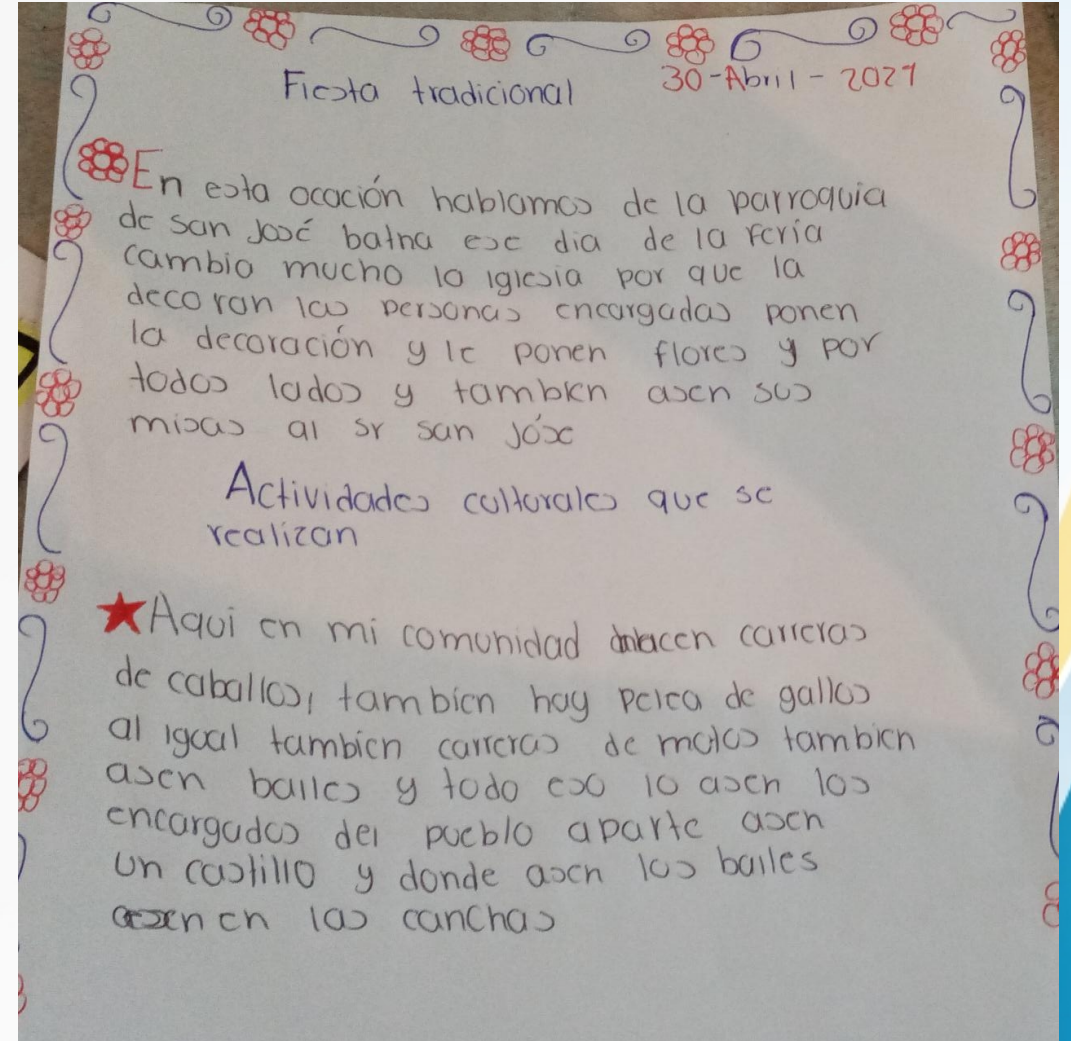 Fiesta tradicional 30-Abril-2021
En esta ocación hablamos de la parroquia
de san José batna ese dia de la feria
cambia mucho la iglesia por que la
decoran las personas encargadas ponen
la decoración y le ponen flores y por
todos lados y tambien asen sus
misas al sr san Jóse
Actividades culturales que se
realizan
Aqui en mi comunidad hacen carreras
de caballos, tambien hay pelea de gallos
al igual tambien carreras de mulas tambien
asen bailes y todo eso lo asen los
encargados del pueblo aparte asen
un castillo y donde asen los bailes
asen en las canchas